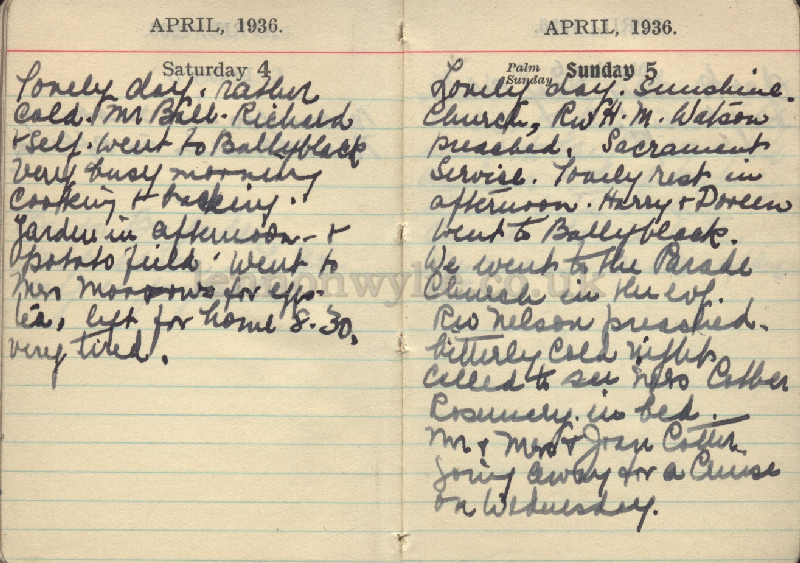 APRIL, 1936.
Saturday 4
Lovely day. rather
cold. Mr Bill. Richard
& Self. went to Ballyblack
Very busy morning
Cooking & baking.
Garden in afternoon. &
potato field. went to
Mrs Morrows for eggs.
tea, left for home 8.30.
very tired.
APRIL, 1936.
Palm Sunday Sunday 5
Lovely day. Sunshine.
Church, Rev H. M. Watson
preached. Sacrament
Servise. Lovely rest in
afternoon. Harry & Doreen
went to Ballyblack.
We went to the Parade
Church in the evg.
Rev Nelson preached.
bitterly Cold night
Called to see Mrs Cotter
Rosemary in bed.
Mr & Mrs & Joan Cotter
going away for a Cruise
on Wednesday.